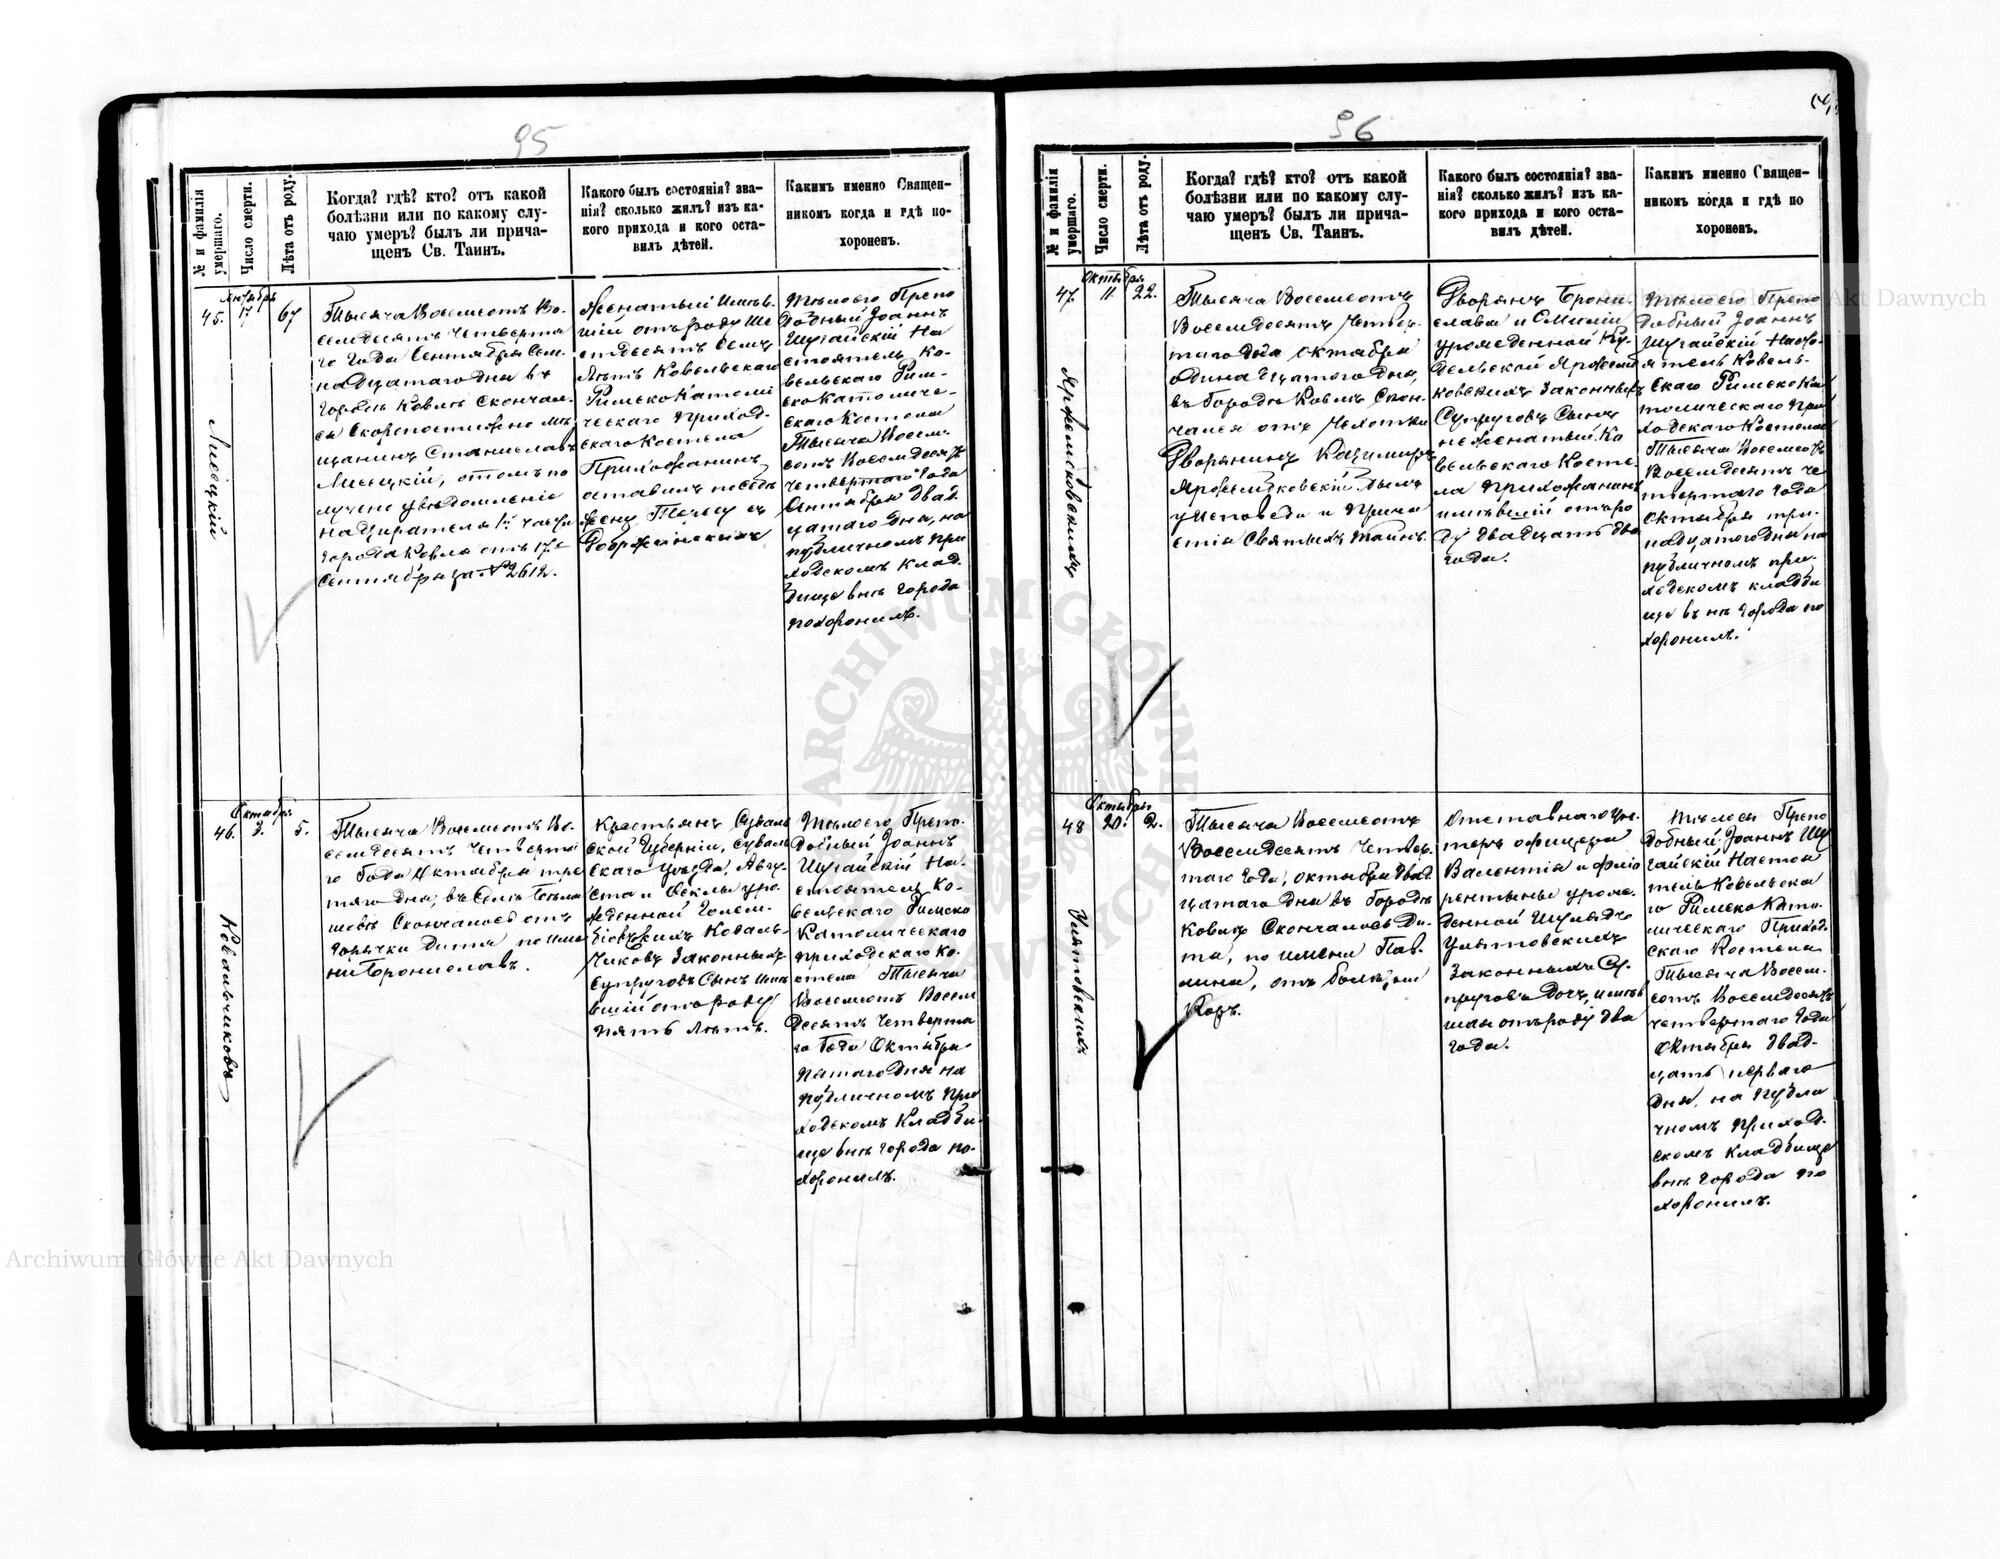 95
№ и фамилія умершаго.
Число смерти.
Лѣта отъ роду.
Когда? гдѣ? кто? отъ какой
болѣзни или по какому слу-
чаю умеръ? былъ ли прича-
щенъ Св. Таинъ.
Какого былъ состоянія? зва-
нія? сколько жилъ? изъ ка-
кого прихода и кого оста-
вилъ дѣтей.
Какимъ именно Священ-
никомъ когда и гдѣ по-
хороненъ.
45.
Лисецкій
17.
67
Тысяча Восемьсотъ Во-
семдесятъ Четверта
го Года Сентября Сем-
надцатаго дня въ
Городѣ Ковлѣ Скончал-
ся Скоропостижно мѣ-
щанинъ Станиславъ
Лисецкій, о томъ по
лучено увѣдомленіе
надзирателя 1й части
города Ковля отъ 17го
Сентября за № 2612.
Женатый имѣв-
шій отъ роду Ше
стдесятъ Семъ
Лѣтъ Ковельскаго
Римско Католи
ческаго Приход-
скаго Костела
Прихожанинъ
оставилъ по себѣ
жену
Тѣло его Препо
добный Іоаннъ
Шугайскій На
стоятель Ко-
вельскаго Рим-
ско Католиче-
скаго Костела
Тысяча Восем-
сотъ Восемдесятъ
Четвертаго Года
Сентября двад
цатаго дня, на
публичномъ при
ходскомъ Клад-
бище внѣ Города
похоронилъ.
46.
Ковальчиковъ
Октября
3.
5.
Тысяча Восемсотъ Во-
семдесятъ Четверта
го Года Октября тре
тяго дня, въ Селѣ
Скончалось отъ
горячки Дитя по име
ни Брониславъ.
Крестьянъ Суваль
ской Губерніи, Суваль
скаго Уѣзда, Авгу-
ста и Феклы уро-
жденной
Коваль-
чиковъ Законныхъ
Супруговъ Сынъ имѣ
вшій отъ роду
пять Лѣтъ.
Тѣло его Препо-
добный Іоаннъ
Шугайскій На-
стоятель Ко-
вельскаго Римско
Католическаго
приходскаго Ко-
стела Тысяча
Восемсотъ Восем
десятъ Четверта
го Года Октября
Пятаго Дня на
публичномъ при
ходскомъ Кладби-
ще внѣ города по-
хоронилъ.
96
№ и фамилія умершаго.
Число смерти.
Лѣта отъ роду.
Когда? гдѣ? кто? отъ какой
болѣзни или по какому слу-
чаю умеръ? былъ ли прича-
щенъ Св. Таинъ.
Какого былъ состоянія? зва-
нія? сколько жилъ? изъ ка-
кого прихода и кого оста-
вилъ дѣтей.
Какимъ именно Священ-
никомъ когда и гдѣ по
хороненъ.
47.
Октября
11.
22.
Тысяча Восемсотъ
Восемдесятъ Четвер-
таго Года Октября
одинадцатого Дня,
въ Городѣ Ковлѣ Скон-
чался отъ Чахотки
Дворянинъ Казимиръ
былъ
у Исповѣди и Прича
стія Святыхъ Тайнъ.
Дворянъ Брони-
слава и Эмиліи
урожденной
Законныхъ
Супруговъ Сынъ
неженатый Ко
вельскаго Косте-
ла прихожанинъ
имѣвшій отъ ро
ду двадцать два
года.
Тѣло его Препо
добный Іоаннъ
Шугайскій Насто
ятель Ковель-
скаго Римско Ка
толическаго При
ходскаго Костела
Тысяча Восемсотъ
Восемдесятъ че
твертаго Года
Октября три-
надцатого Дня на
публичномъ при
ходскомъ кладби
ще внѣ города по
хоронилъ.
48
Октября
20.
2.
Тысяча Восемсотъ
Восемдесятъ Четвер-
таго Года, Октября двад
цатаго Дня въ Городѣ
Ковлѣ Скончалось Ди-
тя, по имени Пав-
лина, отъ болѣзни
Коръ.
Отставнаго Ун-
теръ офицера
Валентія и Фло
рентыны урож-
денной
Улятовскихъ
Законныхъ Су-
пруговъ Дочь, имѣв
шая отъ роду два
года.
Тѣло ея Препо
добный Іоаннъ Шу
гайскій Настоя
тель Ковельска
го Римско Като-
лическаго Приход
скаго Костела
Тысяча Восем-
сотъ Восемдесятъ
четвертаго Года
Октября Двад-
цать перваго
Дня, на Публи
чномъ приход-
скомъ Кладбище
внѣ города по
хоронилъ.
Archiwum Główne Akt Dawnych
Archiwum Główne Akt Dawnych
ARCHIWUM GŁÓWNE AKT DAWNYCH